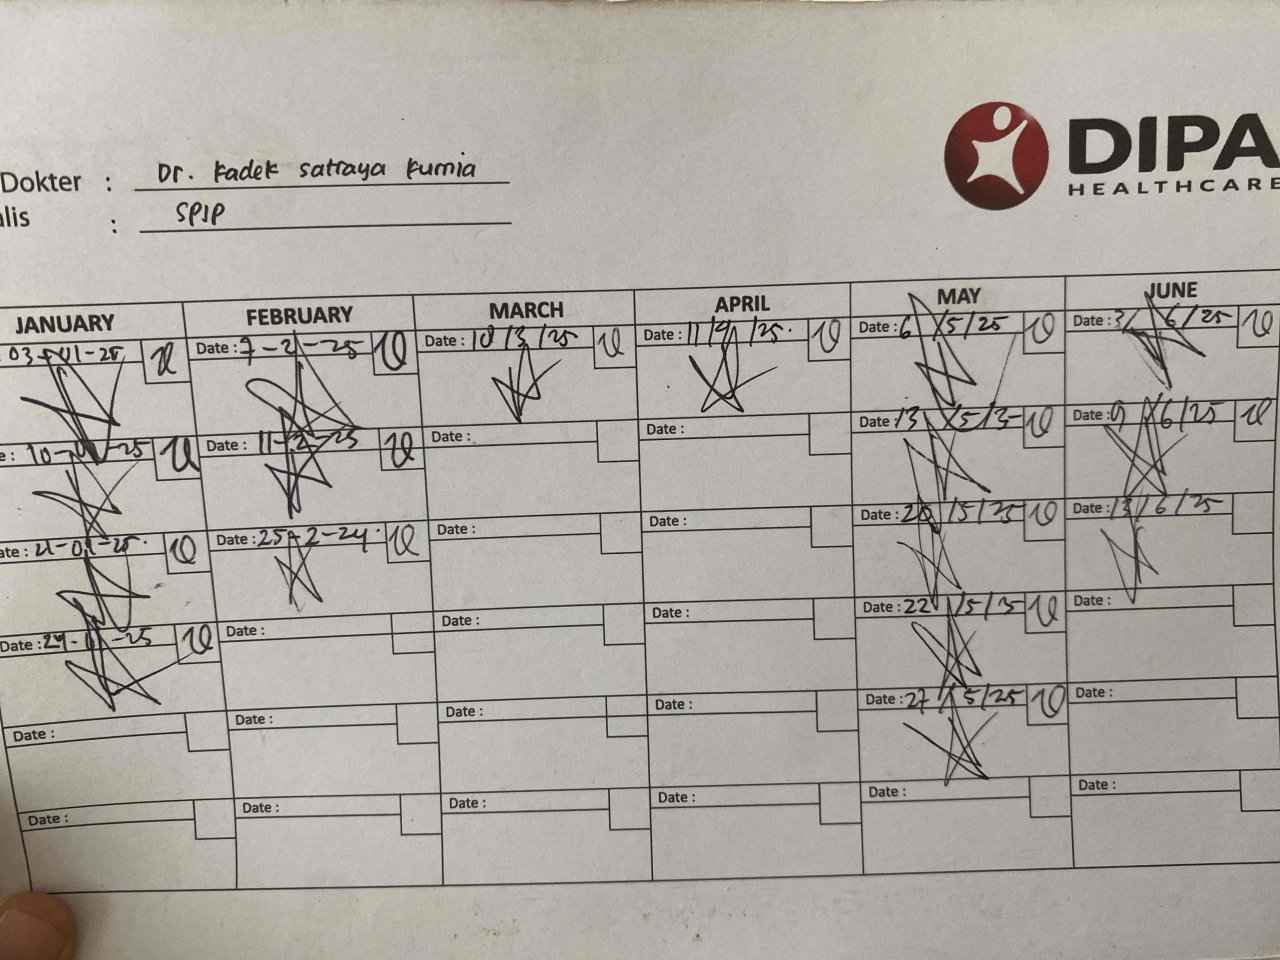 DIPA
HEALTHCARE
Dokter : Dr. Kadek Satraya Kurnia
alis : SPJP
JANUARY FEBRUARY MARCH APRIL MAY JUNE
03-01-25 Date : 7-2-25 Date : 10/3/25 Date : 11/4/25. Date : 6/5/25 Date : 3/6/25
e : 10-01-25 Date : 11-2-25 Date : Date : Date : 13/5/25 Date : 9/6/25
ate : 21-01-25. Date : 25-2-24. Date : Date : Date : 20/5/25 Date : 13/6/25
Date : 24-01-25 Date : Date : Date : Date : 22/5/25 Date :
Date : Date : Date : Date : Date : 27/5/25 Date :
Date : Date : Date : Date : Date : Date :